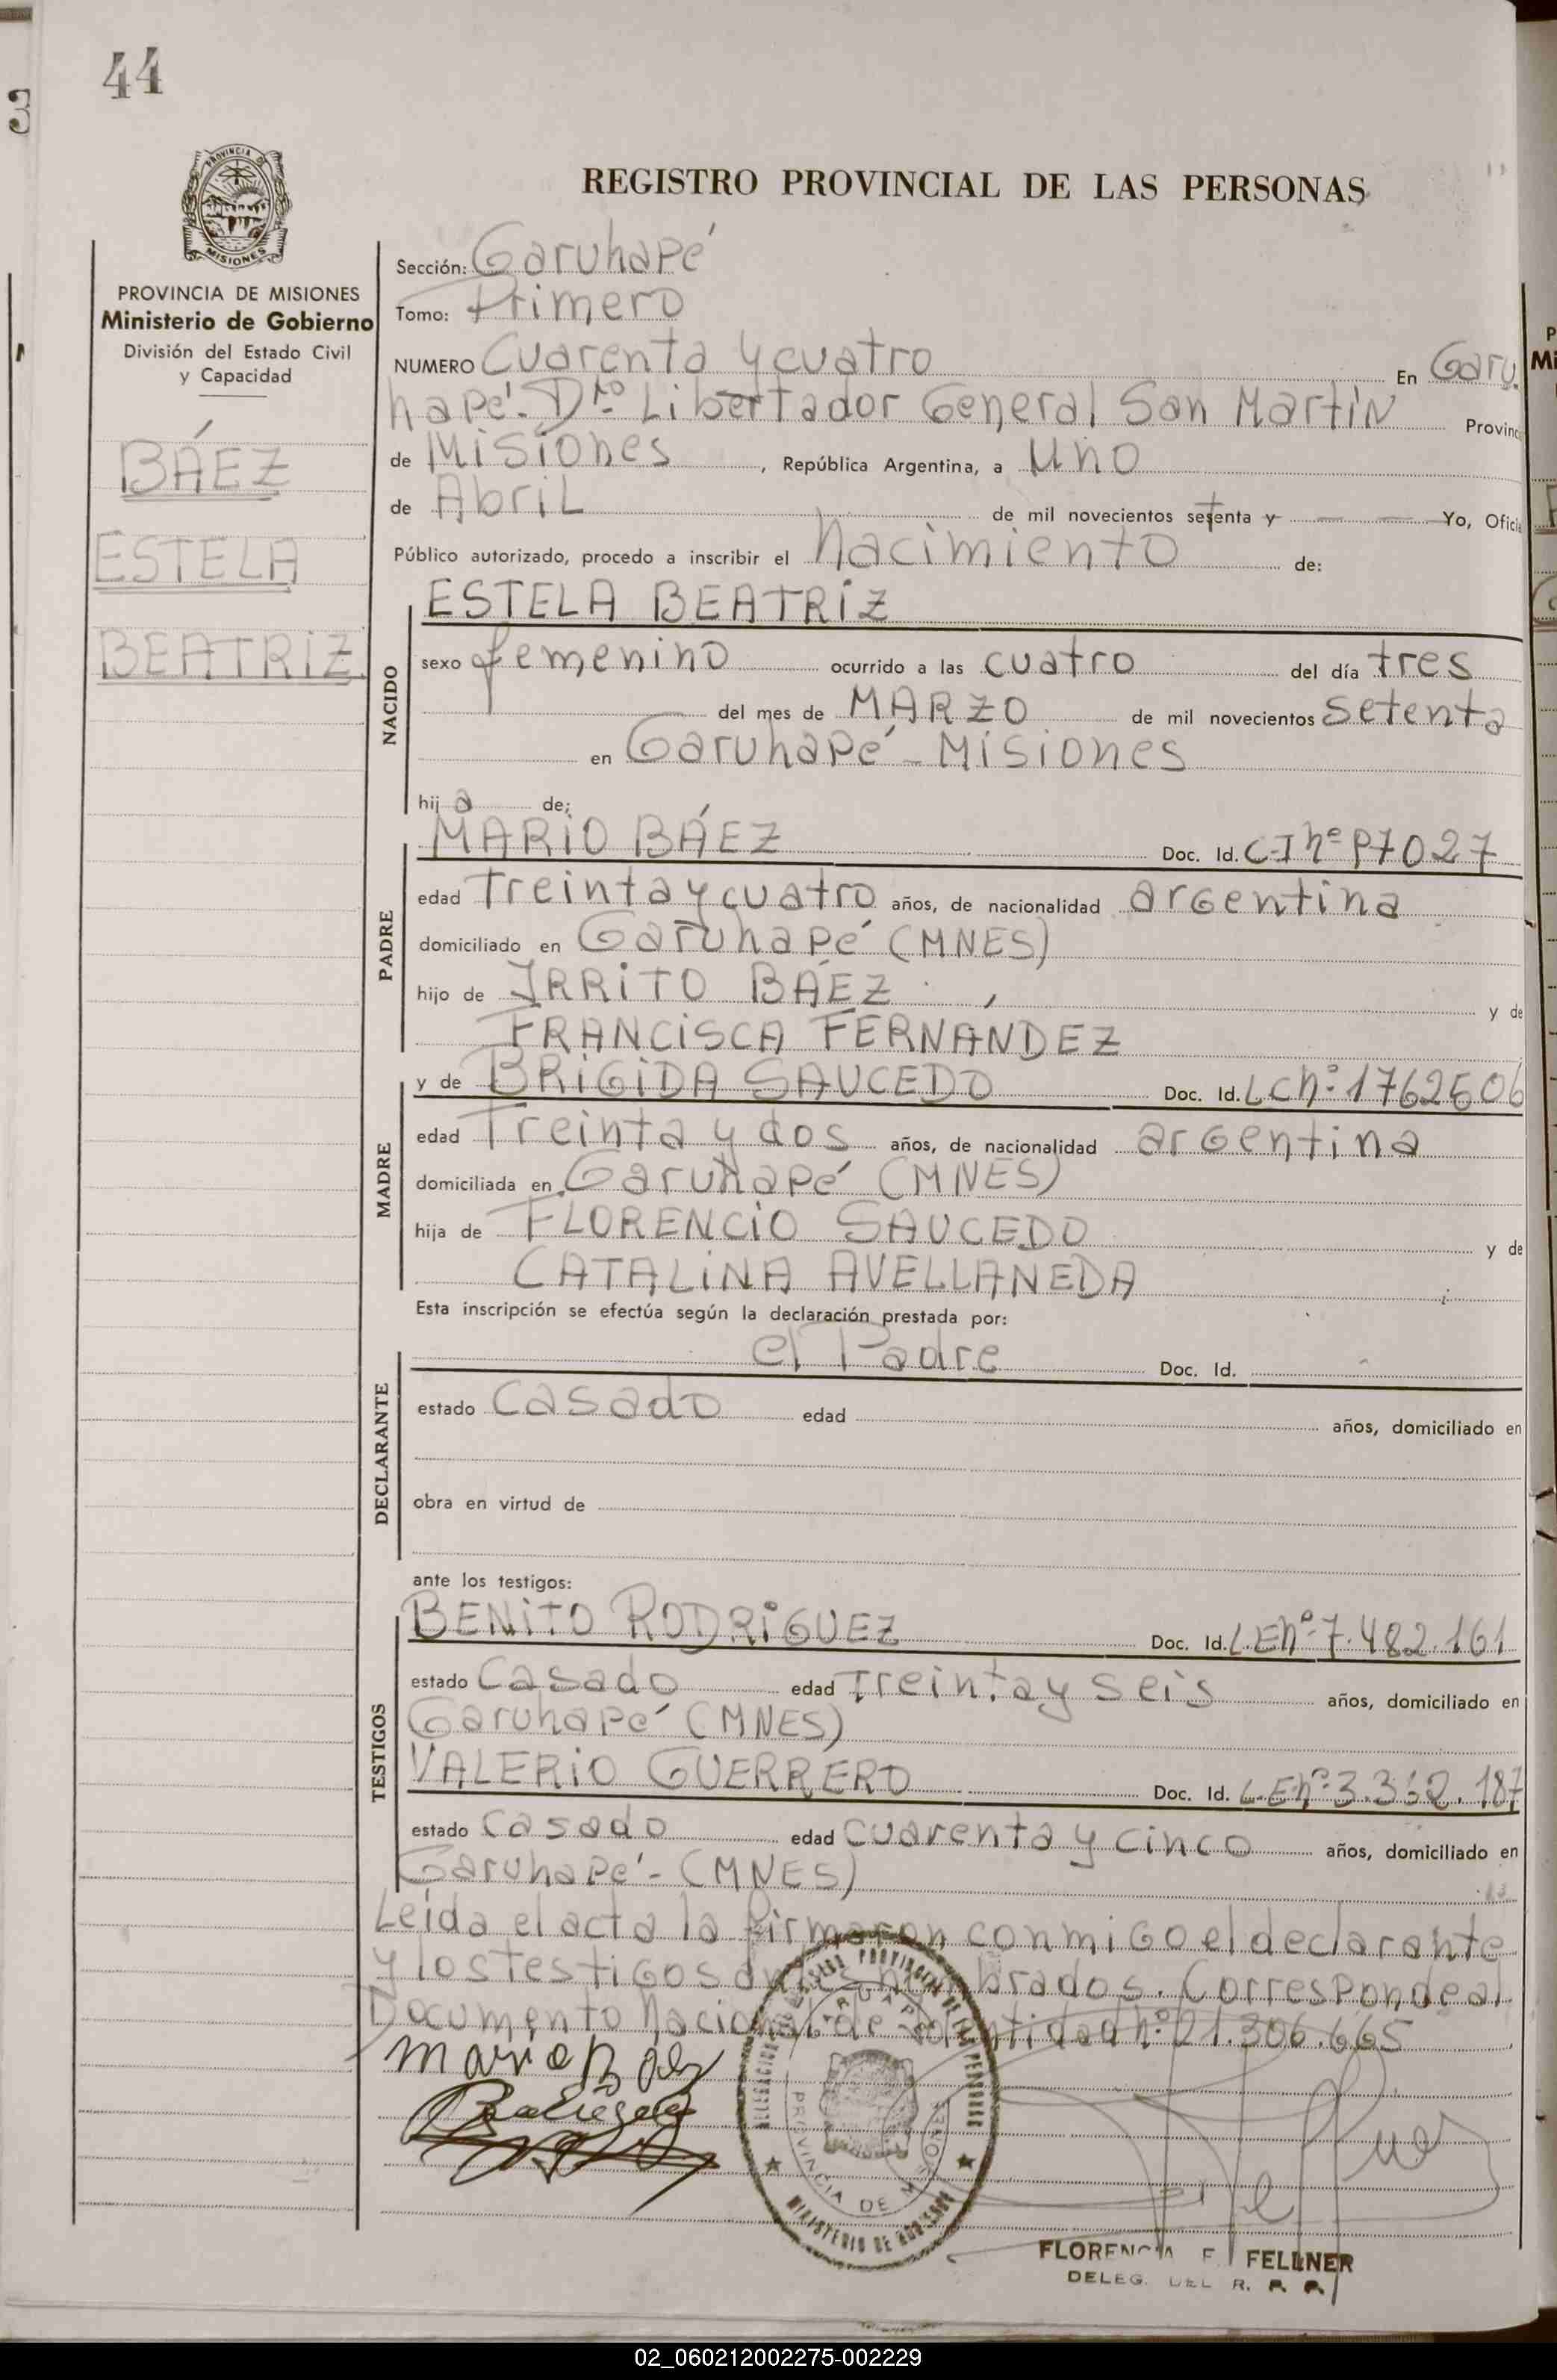 44
REGISTRO PROVINCIAL DE LAS PERSONAS
PROVINCIA DE
MISIONES
PROVINCIA DE MISIONES
Ministerio de Gobierno
División del Estado Civil
y Capacidad
BÁEZ
ESTELA
BEATRIZ
Sección: Garuhapé
Tomo: Primero
NUMERO Cuarenta y cuatro En Garu
hapé. Dto. Libertador General San Martín Provinc
de Misiones, República Argentina, a Uno
de Abril de mil novecientos setenta y — — Yo, Oficia
Público autorizado, procedo a inscribir el nacimiento de:
NACIDO
ESTELA BEATRIZ
sexo femenino ocurrido a las cuatro del día tres
del mes de MARZO de mil novecientos setenta
en Garuhapé - Misiones
hija de;
PADRE
MARIO BÁEZ Doc. Id. C.I nº 97027
edad Treinta y cuatro años, de nacionalidad argentina
domiciliado en Garuhapé (MNES)
hijo de IRRITO BÁEZ y de
FRANCISCA FERNÁNDEZ
MADRE
y de BRIGIDA SAUCEDO Doc. Id. LC nº 1762506
edad Treinta y dos años, de nacionalidad argentina
domiciliada en Garuhapé (MNES)
hija de FLORENCIO SAUCEDO y de
CATALINA AVELLANEDA
Esta inscripción se efectúa según la declaración prestada por:
DECLARANTE
el Padre Doc. Id.
estado Casado edad años, domiciliado en
obra en virtud de
ante los testigos:
TESTIGOS
BENITO RODRIGUEZ Doc. Id. L.E nº 7.482.161
estado Casado edad Treinta y seis años, domiciliado en
Garuhapé (MNES)
VALERIO GUERRERO Doc. Id. L.E nº 3.312.187
estado Casado edad Cuarenta y cinco años, domiciliado en
Garuhapé - (MNES)
Leida el acta la firmaron conmigo el declarante
y los testigos antes nombrados. Corresponde al
Documento Nacional de identidad nº 21.306.665
Mario Baez
PROVINCIAL DE LAS PERSONAS
GARUHAPE
PROVINCIA DE MISIONES
MINISTERIO DE GOBIERNO
FLORENCIA F. FELLNER
DELEG. DEL R. P. P.
02_060212002275-002229